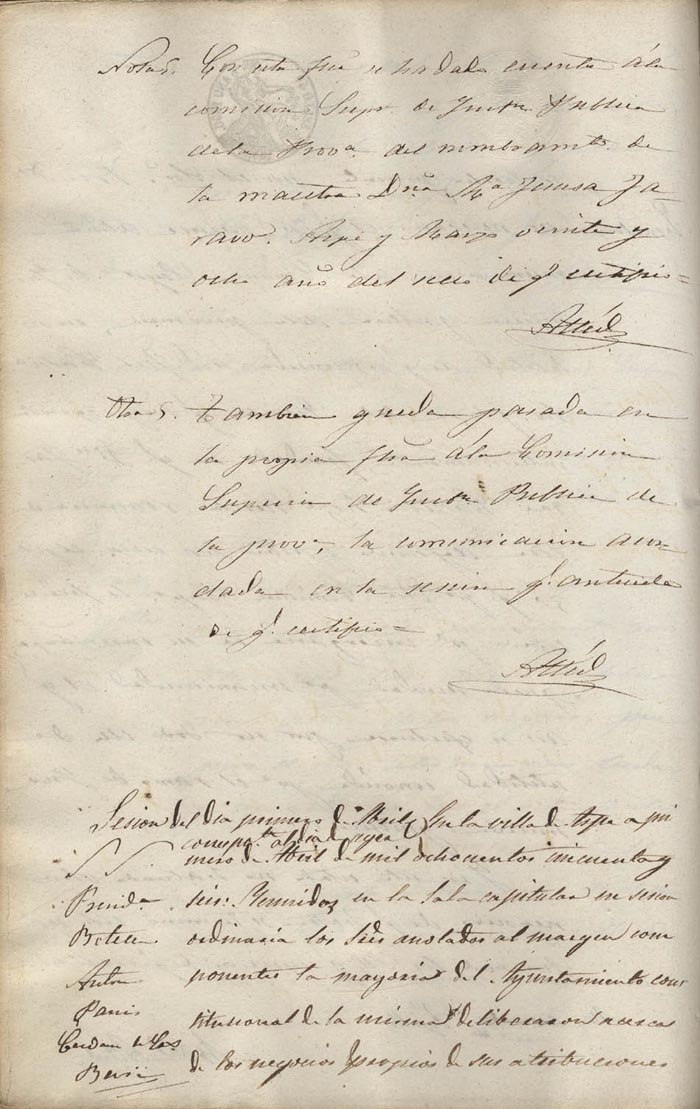 Nota. Con esta fha se ha dado cuenta á la
comision Supr. de Instn. Publica
de la Prova. del nombramto. de
la maestra Dña. Ma. Jesusa Ja-
ravo. Aspe y Marzo veinte y
ocho año del sello de q. certifico =
Otra. Tambien queda pasada en
la propia fha á la Comision
Superior de Instn. Publica de
la prova., la comunicacion acor-
dada en la sesion q. antecede
de q. certifico =
Sesion del dia primero de Abril En la villa de Aspe a pri
mero de Abril de mil ochocientos cincuenta y
Presidte. seis: Reunidos en la Sala capitular en sesion
Botella ordinaria los Sres anotados al margen com
Anton ponentes la mayoria del Ayuntamiento cons
titucional de la misma deliberaron acerca
de los negocios propios de sus atribuciones